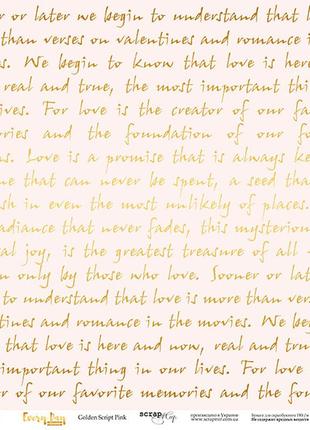 r or later we begin to understand that l
than verses on valentines and romance i
s. We begin to know that love is here
real and true, the most important thin
ives. For love is the creator of our fa
ories and the foundation of our fo
ns. Love is a promise that is always ke
ne that can never be spent, a seed tha
sh in even the most unlikely of places.
adiance that never fades, this mysterio
al joy, is the greatest treasure of all -
n only by those who love. Sooner or lat
to understand that love is more than vers
tines and romance in the movies. We be
that love is here and now, real and tru
important thing in our lives. For love
r of our favorite memories and the fou
Every Day Golden Script Pink scrapmir произведено в Украине
www.scrapmir.com.ua
Бумага для скрапбукинга 190 г/м
Не содержит вредных веществ